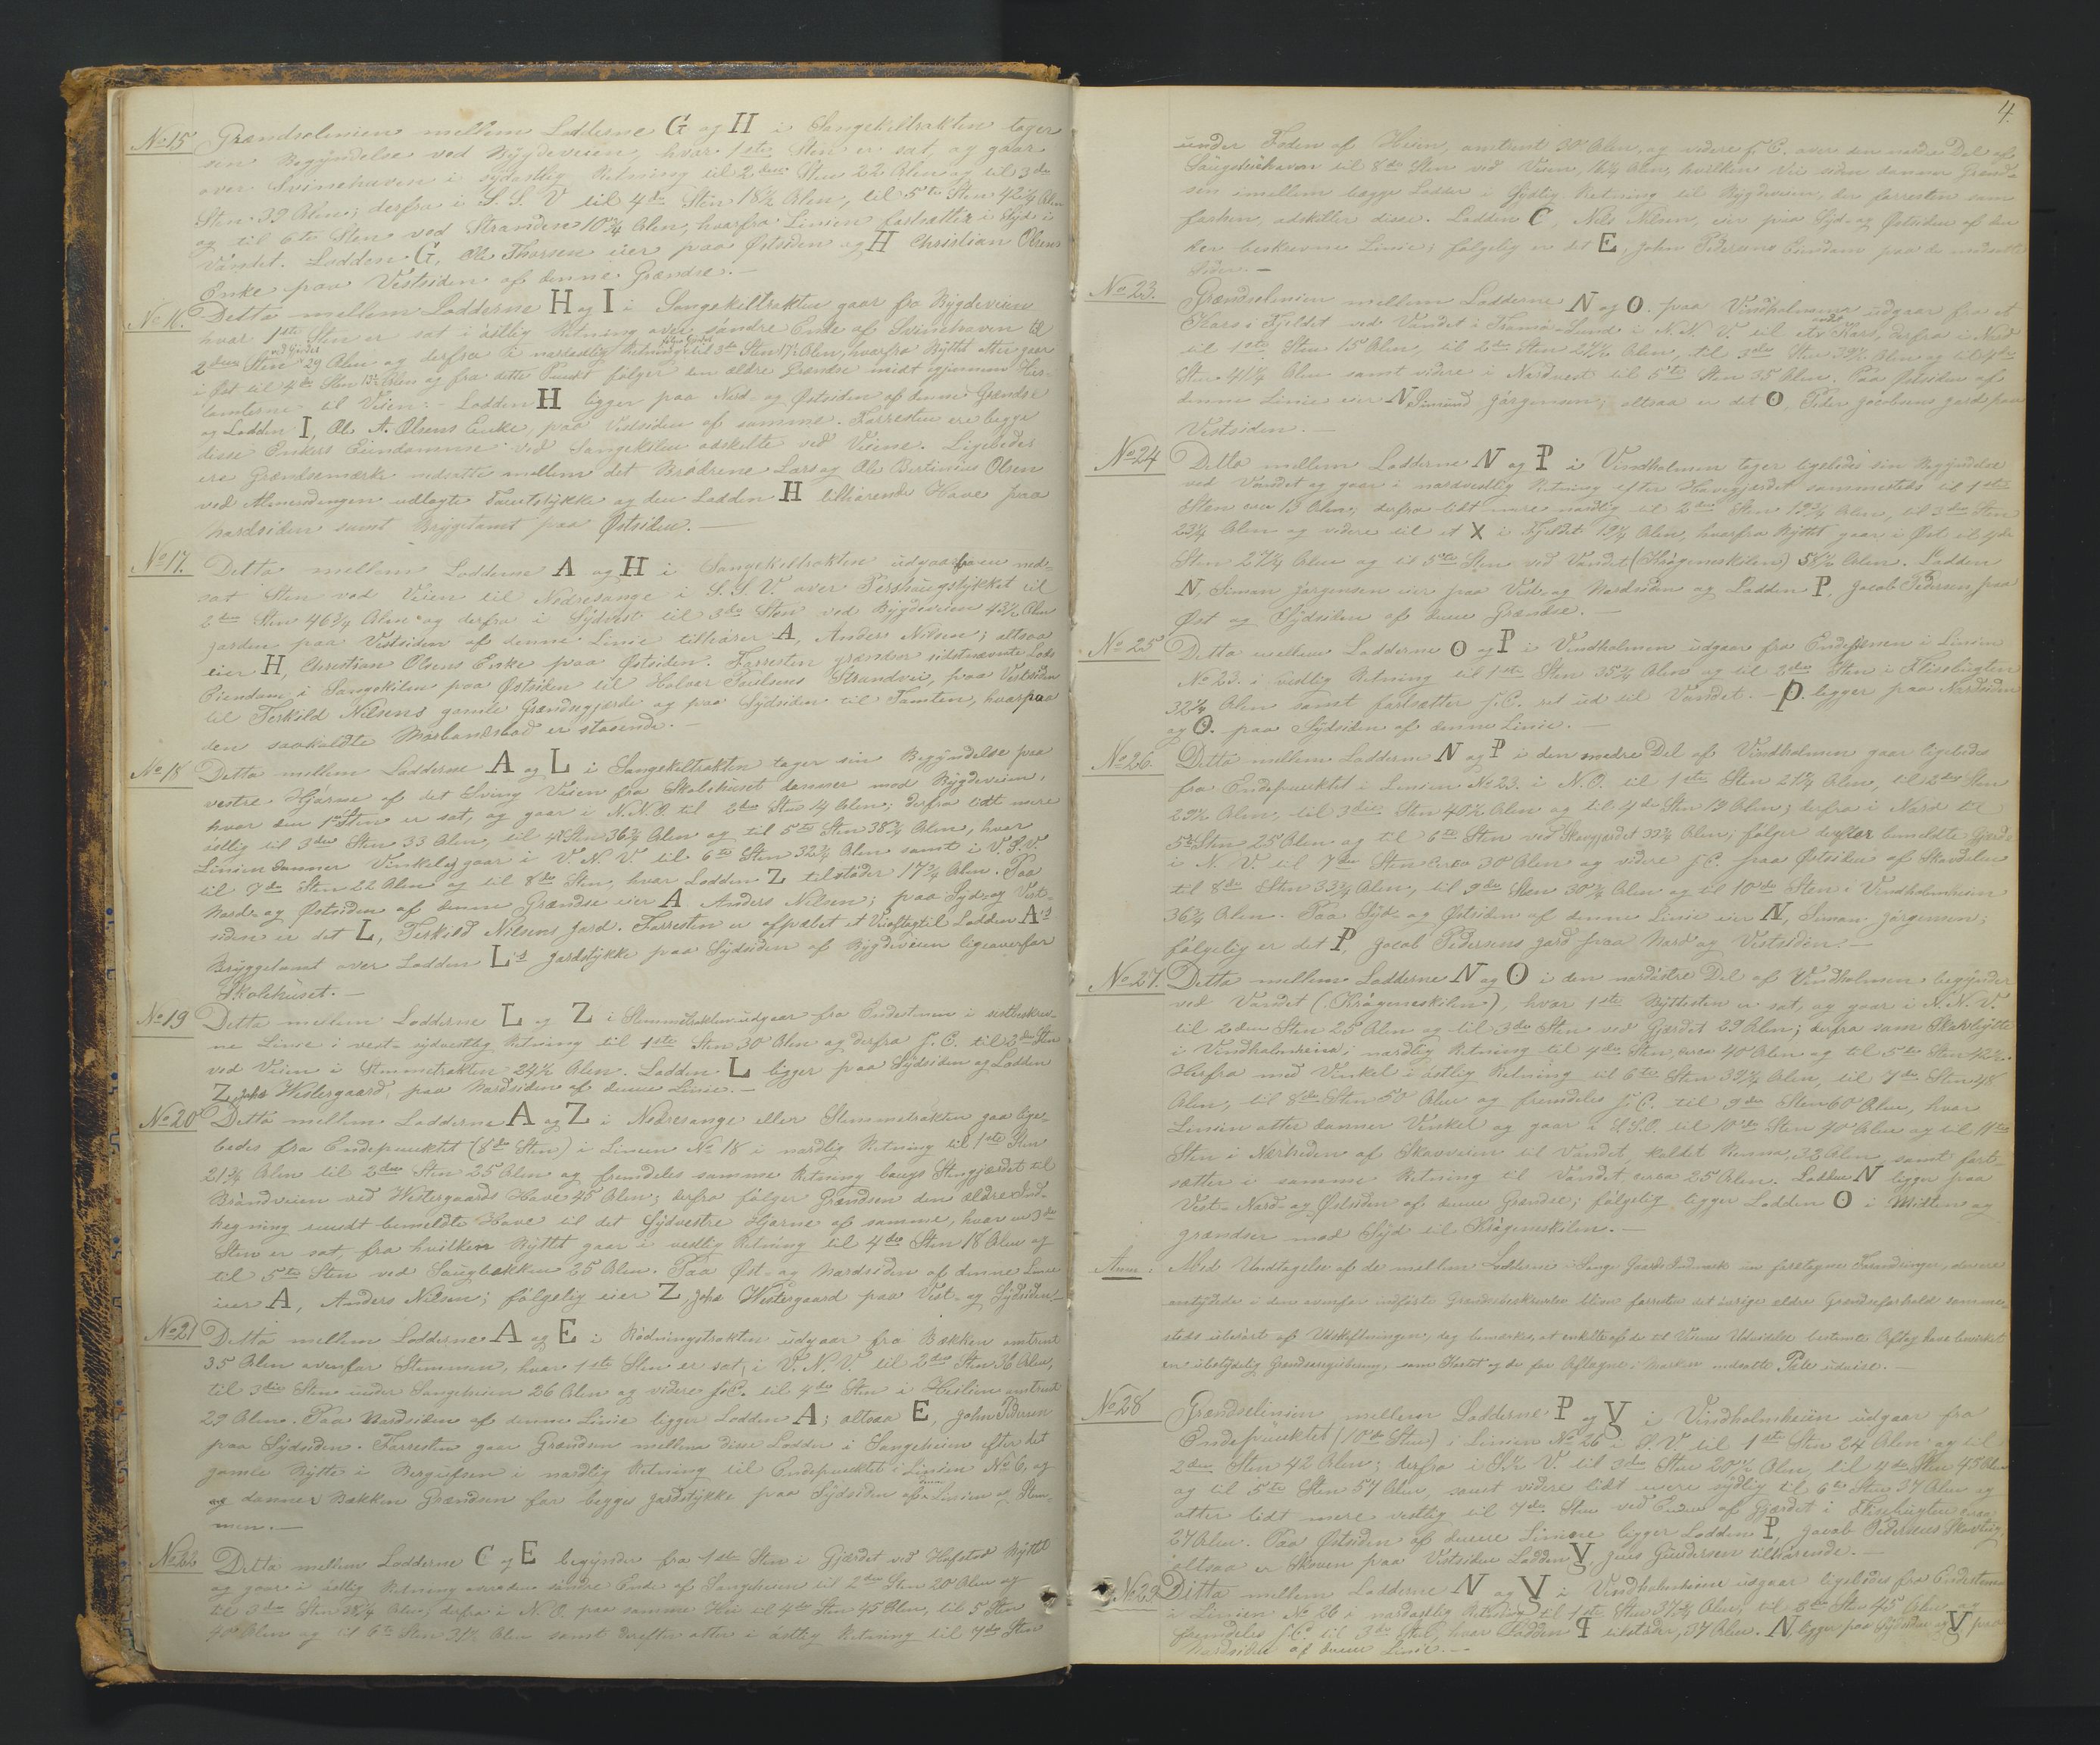 No 15 Grændselinien mellem Lodderne G og H i Sangekiltrakten tager
sin Begyndelse ved Bygdeveien, hvor 1ste Sten er sat, og gaar
over Svinehaven i sydøstlig Retning til 2den Sten 22 Alen og til 3die
Sten 39 Alen; derfra i S. S. V til 4de Sten 18½ Alen, til 5te Sten 42¼ Alen
og til 6te Sten ved Stranden 10¾ Alen, hvorfra Linien fortsætter i Syd i
Vandet. Lodden G, Ole Thorsen eier paa Østsiden og H Christian Olsens
Enke paa Vestsiden af denne Grændse. —
No 16. Detto mellem Lodderne H og I i Sangekiltrakten gaar fra Bygdeveien
hvor 1ste Sten er sat i østlig Retning over søndre Ende af Svinehaven til
2den Sten 29 Alen og derfra i nordostlig Retning til 3die Sten 17½ Alen, hvorfra Byttet atter gaar
i Øst til 4de Sten 15½ Alen og fra dette Punkt følger den ældre Grændse midt igjennem
til Veien: — Lodden H ligger paa Nord- og Østsiden af denne Grændse
og Lodden I, Ole A. Olsens Enke, paa Vestsiden af samme. Forresten ere begge
disse Enkers Eiendomme ved Sangekilen adskilte ved Veiene. Ligeledes
ere Grændsemærke nedsatte mellem det Brødrene Lars og Ole Bertinius Olsen
ved Almendingen udlagte Tomtstykke og den Lodden H tilhørende Have paa
nordsiden samt Bryggetomt paa Østsiden. —
No 17. Detto mellem Lodderne A og H i Sangekiltrakten udgaar fra en ned-
sat Sten ved Veien til Nedresange i S. S. V. over Pershaugstykket til
2den Sten 46¾ Alen og derfra i Sydvest til 3die Sten ved Bygdeveien 43½ Alen
Jorden paa Vestsiden af denne Linie tilhører A, Anders Nilsen; altsaa
eier H, Christian Olsens Enke paa Østsiden. Forresten grændser sidstnævnte Lods
Eiendom i Sangekilen paa Østsiden til Halvor Poulsens Strandvei, paa Vestsiden
til Terkild Nilsens gamle Grændsegjærde og paa Sydsiden til Tomten, hvorpaa
den saakaldte Morbanesbod er staaende. —
No 18 Detto mellem Lodderne A og L i Sangekiltrakten tager sin Begyndelse paa
vestre Hjørne af det Sving Veien fra Skolehuset danner mod Bygdeveien,
hvor den 1ste Sten er sat, og gaar i N. N. O. til 2den Sten 14 Alen; derfra lidt mere
østlig til 3die Sten 33 Alen, til 4de Sten 36¾ Alen og til 5te Sten 38¾ Alen, hvor
Linien danner Vinkel og gaar i V. N. V. til 6te Sten 32¾ Alen samt i V. S. V.
til 7de Sten 22 Alen og til 8de Sten, hvor Lodden Z tilstøder 17¾ Alen. Paa
Nord- og Østsiden af denne Grændse eier A Anders Nilsen; paa Syd- og Vest-
siden er det L, Terkild Nilsens Jord. Forresten er afpælet et Vieoplag til Lodden A's
Bryggetomt over Lodden L's Jordstykke paa Sydsiden af Bygdeveien ligeoverfor
Skolehuset. —
No 19 Detto mellem Lodderne L og Z i Stemmetrakten udgaar fra Endestenen i sistbeskrev-
ne Linie i vest-sydvestlig Retning til 1ste Sten 30 Alen og derfra f. C. til 2den Sten
ved Veien i Stemmetrakten 24½ Alen. Lodden L ligger paa Sydsiden og Lodden
Z, Johs Westergaard, paa Nordsiden af denne Linie. —
No 20 Detto mellem Lodderne A og Z i Nedresange eller Stemmetrakten gaa lige-
ledes fra Endepunktet (8de Sten) i Linien No 18 i nordlig Retning til 1ste Sten
21¾ Alen til 2den Sten 25 Alen og fremdeles samme Retning langs Stengjærdet til
Brøndveien ved Westergaards Have 45 Alen; derfra følger Grændsen den ældre Ind-
hegning rundt bemeldte Have til det Sydvestre Hjørne af samme, hvor en 3die
Sten er sat, fra hvilken Byttet gaar i vestlig Retning til 4de Sten 18 Alen og
til 5te Sten ved Saugbækken 25 Alen. Paa Øst- og Nordsiden af denne Linie
eier A, Anders Nilsen; følgelig eier Z, Johs Westergaard paa Vest- og Sydsiden. —
No 21 Detto mellem Lodderne A og E i Rødningstrakten udgaar fra Bækken omtrent
35 Alen ovenfor Stemmen, hvor 1ste Sten er sat, i V. N. V. til 2den Sten 16 Alen,
til 3die Sten under Sangeheien 26 Alen og videre f. C. til 4de Sten i Heilien omtrent
29 Alen. Paa Nordsiden af denne Linie ligger Lodden A; altsaa E, John Pedersen
paa Sydsiden. Forresten gaar Grændsen mellem disse Lodder i Sangeheien efter det
gamle Bytte i Bergufsen i nordlig Retning til Endepunktet i Linien No 6, og
og danner Bækken Grændsen for begges Jordstykke paa Sydsiden af Linien og Stem-
men. —
No 22 Detto mellem Lodderne C og E begynder fra 1ste Sten i Gjærdet ved Hofstad Byttet
og gaar i østlig Retning over den søndre Ende af Sangeheien til 2den Sten 20 Alen og
til 3die Sten Alen; derfra i N. O. paa samme Hei til 4de Sten 45 Alen, til 5 Sten
40 Alen og til 6te Sten 31½ Alen samt derefter atter i østlig Retning til 7de Sten
4.
under Foden af Heien, omtrent 30 Alen, og videre f. C. over den nedre Del af
til 8de Sten ved Veien, 16½ Alen, hvilken Vei siden danner Grænd-
sen imellem begge Lodder i sydlig Retning til Bygdeveien, der forresten som
forhen, adskiller disse. Lodden C, Nils Nilsen, eier paa Syd- og Østsiden af den
her beskrevne Linie; følgelig er det E, John Pedersens Eiendom paa de modsatte
Sider. —
No 23. Grændselinien mellem Lodderne N og O paa Vindholmen udgaar fra et
Kors i Fjeldet ved Vandet i Tromø-Sund i N. N. V. til et andet Kors, derfra i Nord
til 1ste Sten 15 Alen, til 2den Sten 27½ Alen, til 3die Sten 39½ Alen og til 4de
Sten 41¼ Alen samt videre i Nordvest til 5te Sten 35 Alen. Paa Østsiden af
denne Linie eier N, Simund Jørgensen; altsaa er det O, Peder Jacobsens Jord paa
Vestsiden. —
No 24 Detto mellem Lodderne N og P i Vindholmen tager ligeledes sin Begyndelse
ved Vandet og gaar i nordvestlig Retning efter Havegjærdet sammesteds til 1ste
Sten circa 13 Alen; derfra lidt mere nordlig til 2den Sten 19¾ Alen, til 3die Sten
23¼ Alen og videre til et X i Fjeldet 19½ Alen, hvorfra Byttet gaar i Øst til 4de
Sten 27¼ Alen og til 5te Sten ved Vandet (Krøgeneskilen) 58½ Alen. Lodden
N, Simon Jørgensen eier paa Vest- og Nordsiden og Lodden P, Jacob Pedersen, paa
Øst og Sydsiden af denne Grændse. —
No 25 Detto mellem Lodderne O og P i Vindholmen udgaar fra Endestenen i Linien
No 23. i vestlig Retning til 1ste Sten 35¼ Alen og til 2den Sten i Flisebugten
32¼ Alen samt fortsætter f. C. ret ud til Vandet. — P. ligger paa Nordsiden
og O. paa Sydsiden af denne Linie. —
No 26. Detto mellem Lodderne N og P i den nedre Del af Vindholmen gaar ligeledes
fra Endepunktet i Linien No 23. i N. O. til 1ste Sten 21¼ Alen, til 2den Sten
29½ Alen, til 3die Sten 40½ Alen og til 4de Sten 19 Alen; derfra i Nord til
5te Sten 25 Alen og til 6te Sten ved Skovgjærdet 32¼ Alen; følger derefter bemeldte Gjærde
i N. V. til 7de Sten circa 30 Alen og videre f. C. paa Østsiden af Skovdelen
til 8de Sten 33¾ Alen, til 9de Sten 30¾ Alen og til 10de Sten i Vindholmheien
36½ Alen. Paa Syd- og Østsiden af denne Linie eier N, Simon Jørgensen;
følgelig er det P, Jacob Pedersens Jord paa Nord og Vestsiden. —
No 27. Detto mellem Lodderne N og O i den nordøstre Del af Vindholmen begynder
ved Vandet (Krøgeneskilen), hvor 1ste Byttesten er sat, og gaar i N. N. V.
til 2den Sten 25 Alen og til 3die Sten ved Gjærdet 29 Alen; derfra som Skovbytte
i Vindholmheien i nordlig Retning til 4de Sten, circa 40 Alen og til 5te Sten 42½.
Herfra med Vinkel i østlig Retning til 6te Sten 39¼ Alen, til 7de Sten 48
Alen, til 8de Sten 50 Alen og fremdeles f. C. til 9de Sten 60 Alen, hvor
Linien atter danner Vinkel og gaar i S. S. O. til 10de Sten 40 Alen og til 11te
Sten i Nærheden af Skovveien til Vandet, kaldet Renna, 32 Alen, samt fort-
sætter i samme Retning til Vandet, circa 25 Alen. Lodden N ligger paa
Vest- Nord- og Østsiden af denne Grændse; følgelig ligger Lodden O i Midten og
grændser mod Syd til Krøgeneskilen. —
Anm. Med Undtagelse af de mellem Lodderne i Sange Gaards Indmark nu foretagne Forandringer, der ere
antydede i den ovenfor indførte Grændsebeskrivelse bliver forresten det øvrige ældre Grændseforhold samme-
steds uberørt af Udskiftningen, dog bemærkes, at enkelte af de til Veienes Udvidelse bestemte Aflag have bevirket
en ubetydelig Grændseregulering, som Kartet og de for Aflagene i Marken nedsatte Pæle udvise. —
No 28 Grændselinien mellem Lodderne P og V i Vindholmheien udgaar fra
Endepunktet (10de Sten) i Linien No 26 i S. V. til 1ste Sten 24 Alen og til
2den Sten 42 Alen; derfra i V. til 3die Sten 20½ Alen, til 4de Sten 45 Alen
og til 5te Sten 57 Alen, samt videre lidt mere sydlig til 6te Sten 37 Alen og
atter lidt mere vestlig til 7de Sten ved Enden af Gjærdet i Flisebugten circa
27 Alen. Paa Østsiden af denne Linie ligger Lodden P, Jacob Pedersens Skovteig,
altsaa er Skoven paa Vestsiden Lodden V, Jens Gundersen tilhørende. —
No 29 Detto mellem Lodderne N og V i Vindholmheien udgaar ligeledes fra Endestenen
i Linien No 26 i nordostlig Retning til 1ste Sten 37¾ Alen, til 2den Sten 45 Alen og
fremdeles f. C. til 3die Sten, hvor Lodden q tilstøder, 37 Alen. N. ligger paa Sydsiden og V, paa
Nordsiden af denne Linie. —